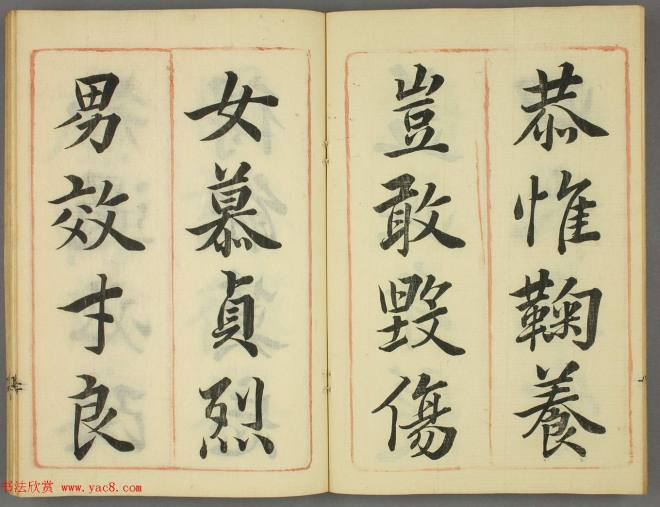 恭惟鞠養
豈敢毀傷
女慕貞烈
男效才良
书法欣赏 www.yac8.com